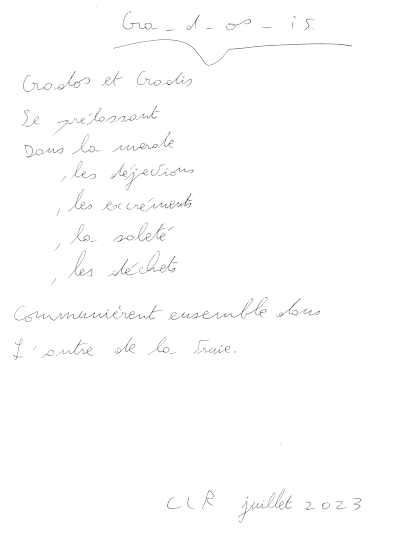 Cra_d_os_is.
Crados et Cradis
Se prélassant
Dans la merde
, les déjections
, les excréments
, la saleté
, les déchets
Communièrent ensemble dans
L'antre de la Truie.
CLR juillet 2023